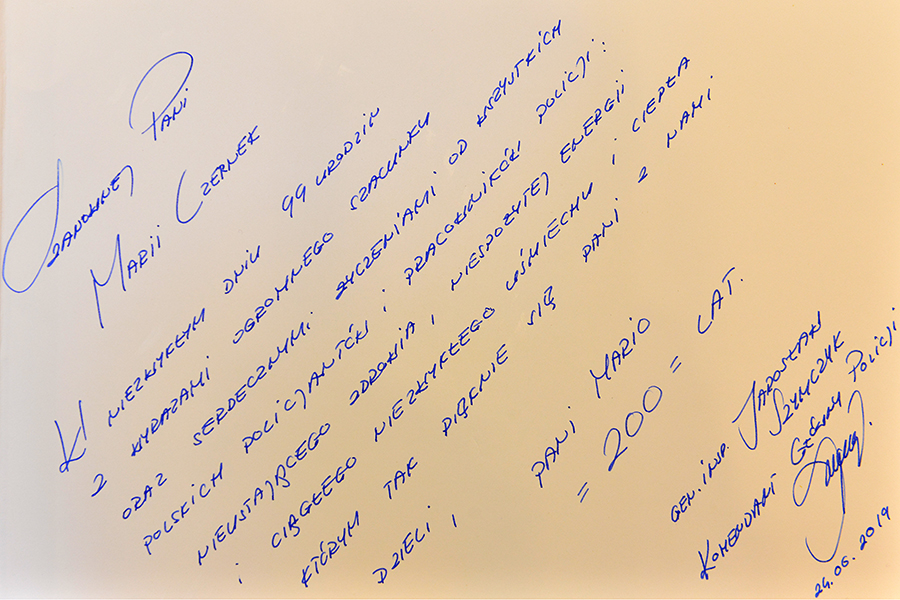 Szanownej Pani
Marii Czernek
W niezwykłym dniu 99 urodzin
z wyrazami ogromnego szacunku
oraz serdecznymi życzeniami od wszystkich
polskich policjantów i pracowników policji:
nieustającego zdrowia, niespożytej energii
i ciągłego niezwykłego uśmiechu i ciepła
którym tak pięknie się Pani z nami
dzieli,
Pani Mario
= 200 = lat.
gen. insp. Jarosław
Szymczyk
Komendant Główny Policji
24.06.2019